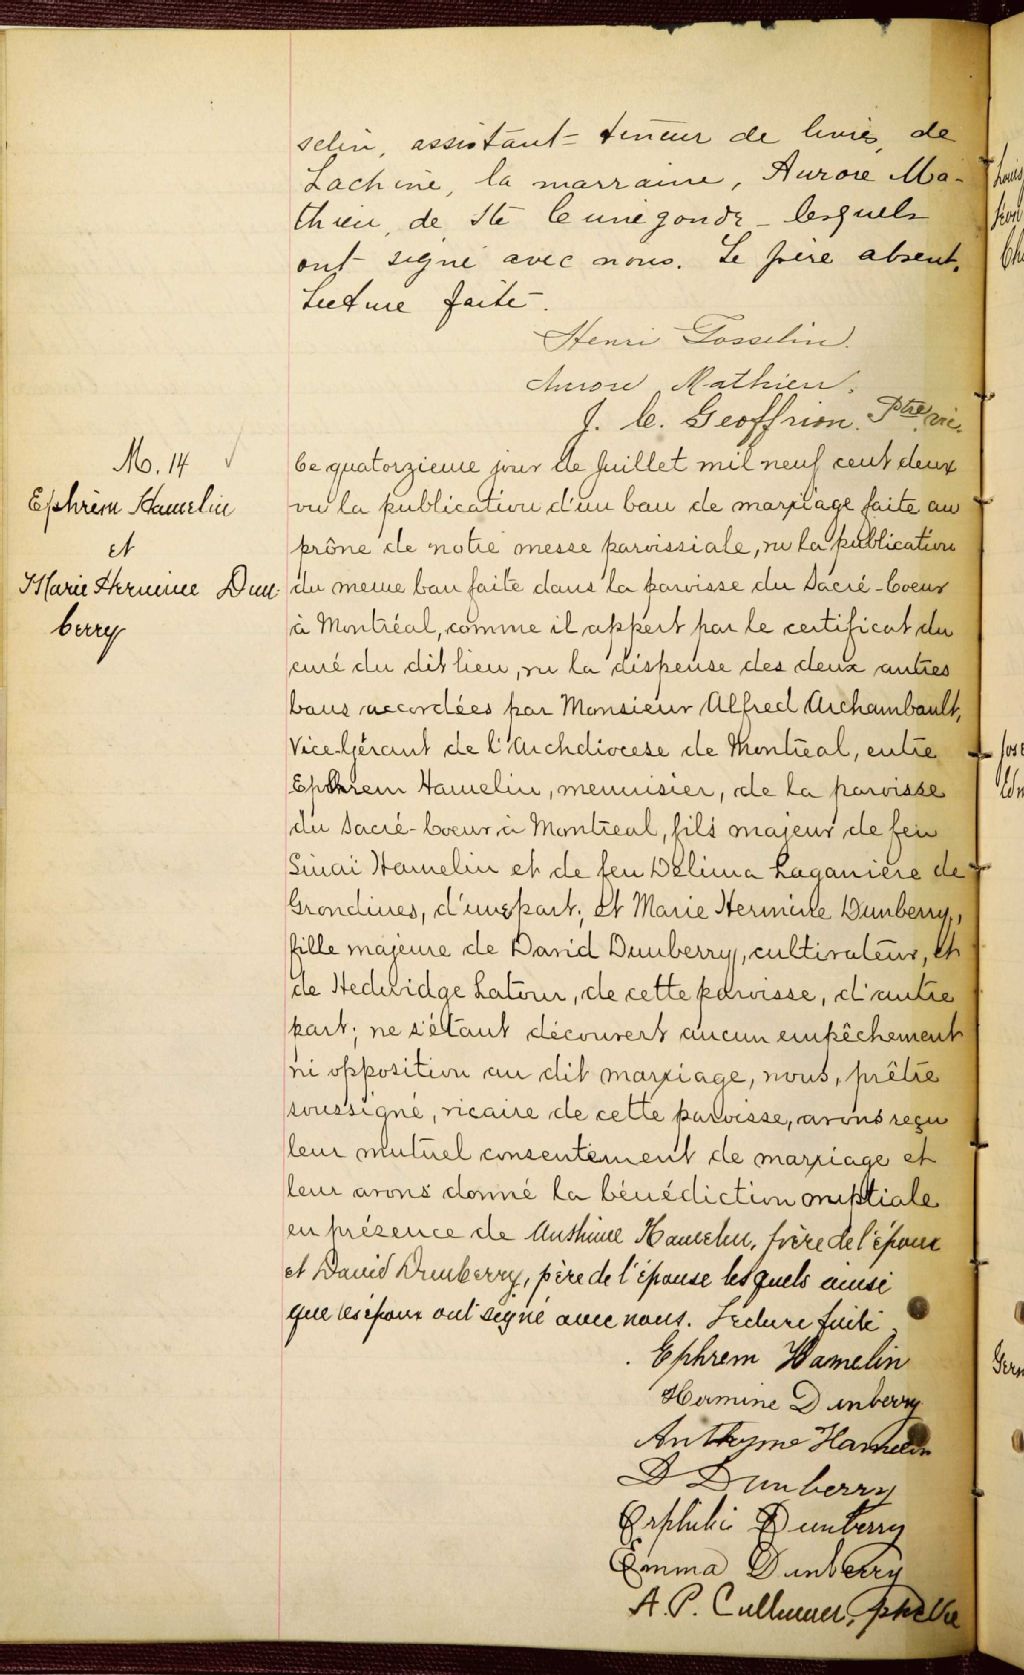 selin, assistant-teneur de livres, de
Lachine, la marraine, Aurore Ma-
thieu, de Ste Cunégonde lesquels
ont signé avec nous. Le père absent.
Lecture faite.
Henri Gosselin.
Aurore Mathieu.
J. C. Geoffrion. Ptre vic.
M. 14
Ephrèm Hamelin
et
Marie Hermine Dun-
berry
Ce quatorzieme jour de Juillet mil neuf cent deux
vu la publication d'un ban de mariage faite au
prône de notre messe paroissiale, vu la publication
du meme ban faite dans la paroisse du Sacré-Coeur
à Montréal, comme il appert par le certificat du
curé du dit lieu, vu la dispense des deux autres
bans accordées par Monsieur Alfred Archambault,
Vice-Gérant de l'Archdiocese de Montreal, entre
Ephrem Hamelin, menuisier, de la paroisse
du Sacré-Coeur à Montreal, fils majeur de feu
Sinaï Hamelin et de feu Delima Laganière de
Grondines, d'une part; et Marie Hermine Dunberry,
fille majeure de David Dunberry, cultivateur, et
de Hedwidge Latour, de cette paroisse, d'autre
part; ne s'étant découvert aucun empêchement
ni opposition au dit mariage, nous, prêtre
soussigné, vicaire de cette paroisse, avons reçu
leur mutuel consentement de mariage et
leur avons donné la bénédiction nuptiale
en présence de Anthime Hamelin, frère de l'époux
et David Dunberry, père de l'épouse lesquels ainsi
que les époux ont signé avec nous. Lecture faite.
Ephrem Hamelin
Hermine Dunberry
Anthyme Hamelin
D Dunberry
Dunberry
Emma Dunberry
A. P.
Louis
Léon
Ch
Jose
Edm
Germ